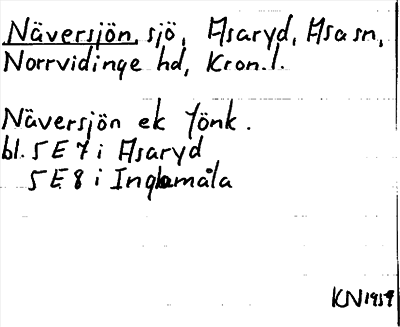 Näversjön, sjö, Asaryd, Asa sn,
Norrvidinge hd, Kron.l.
Näversjön ek Jönk.
bl. 5E7i Asaryd
5E8i Inglamåla
KN 1959